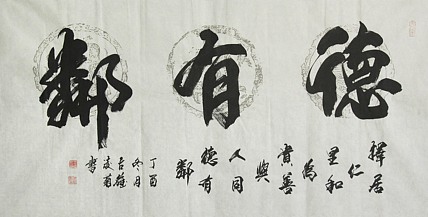 德有鄰
擇居
仁
里和
為
貴善
與
人同
德有
鄰
丁酉
冬月
書